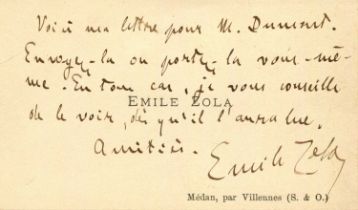 Voici ma lettre pour M. Dumont.
Envoyez-la ou portez-la vous-mê-
me. En tout cas, je vous conseille
EMILE ZOLA
de le voir, dès qu'il l'aura lue.
Amitiés.
Emile Zola
Médan, par Villennes (S. & O.)